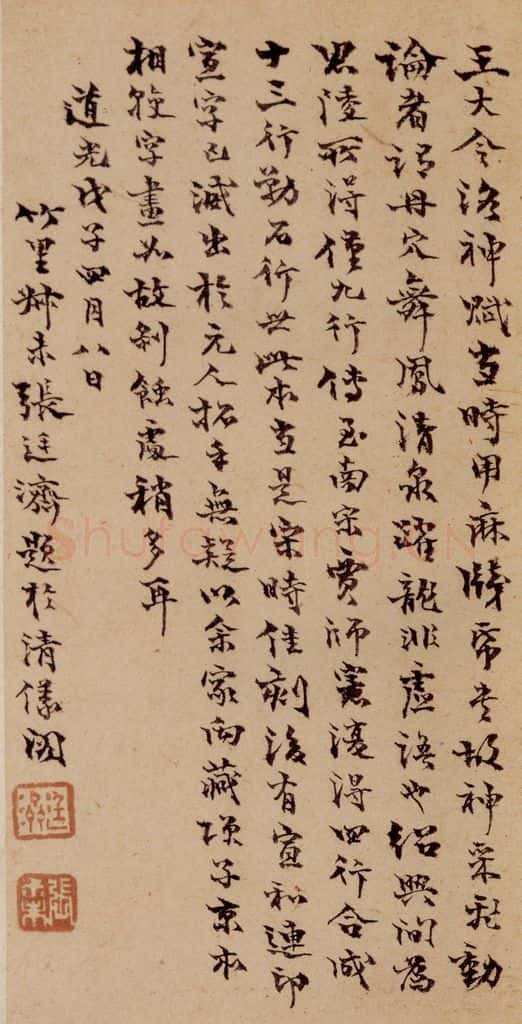 王大令洛神賦當時用麻牋帋書故神采飛動
論者謂丹穴舞鳳清泉躍龍非虛語也紹興間為
思陵所得僅九行傳至南宋賈師憲復得四行合成
十三行勒石行世此本當是宋時佳刻後有宣和連印
宣字已減出於元人拓手無疑以余家向藏項子京本
相校字畫如故剝蝕處稍多耳
道光戊子四月八日
竹里叔未張廷濟題於清儀閣
廷濟
Shufawang.CN